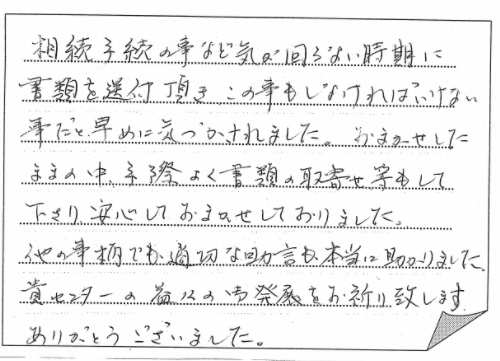 相続手続の事など気が回らない時期に
書類を送付頂き この事もしなければいけない
事だと早めに気づかされました。おまかせした
ままの中、手際よく書類の取寄せ等もして
下さり安心しておまかせしておりました。
他の事柄でも適切な助言も本当に助かりました。
貴センターの益々の御発展をお祈り致します
ありがとうございました。